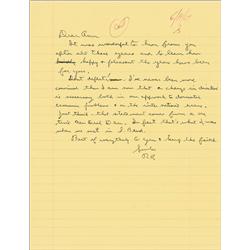 Dear Ann
It was wonderful to hear from you
after all these years and to learn how
happy & pleasant the years have been
for you.
I've never been more
convinced than I am now that a change in
is necessary both in our approach to domestic
economic problems & on the
Just think - that statement comes from a
time New Deal Dem. In fact that's what I was
when we met in
Best of everything to you & keep the faith.
Sincerely
RR